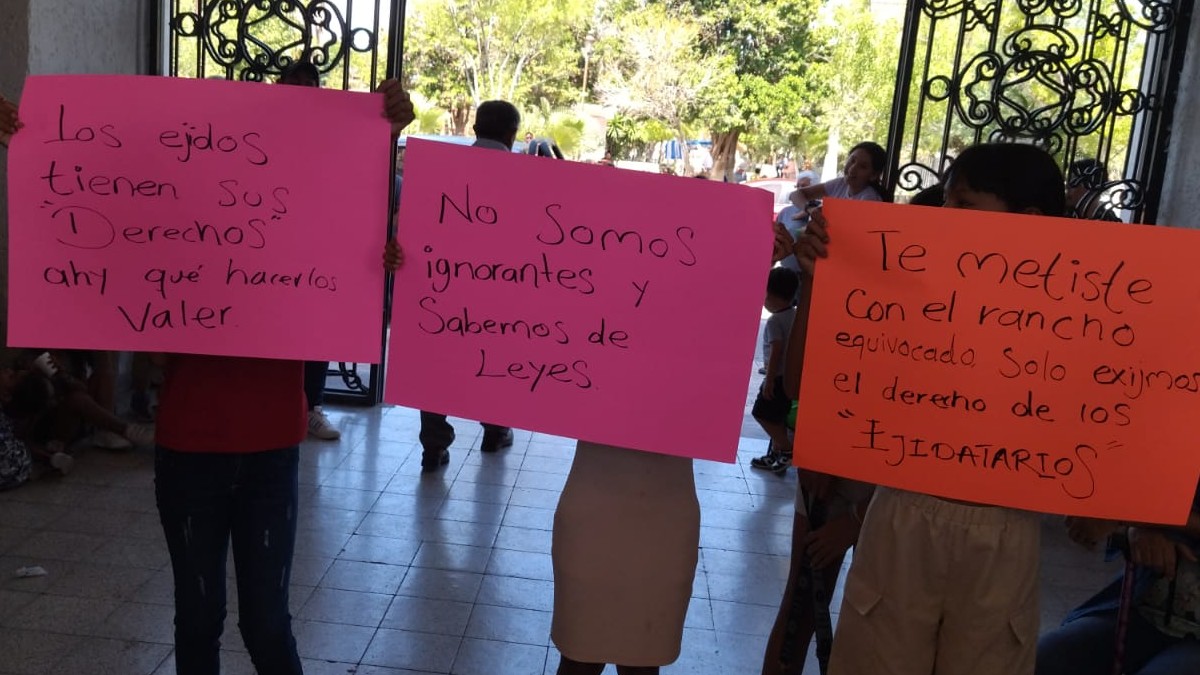 Los ejdos
tienen sus
"Derechos"
ahy qué hacerlos
Valer.
No Somos
ignorantes y
Sabemos de
Leyes.
Te metiste
Con el rancho
equivocado. Solo exijmos
el derecho de los
"EJIDATARIOS"